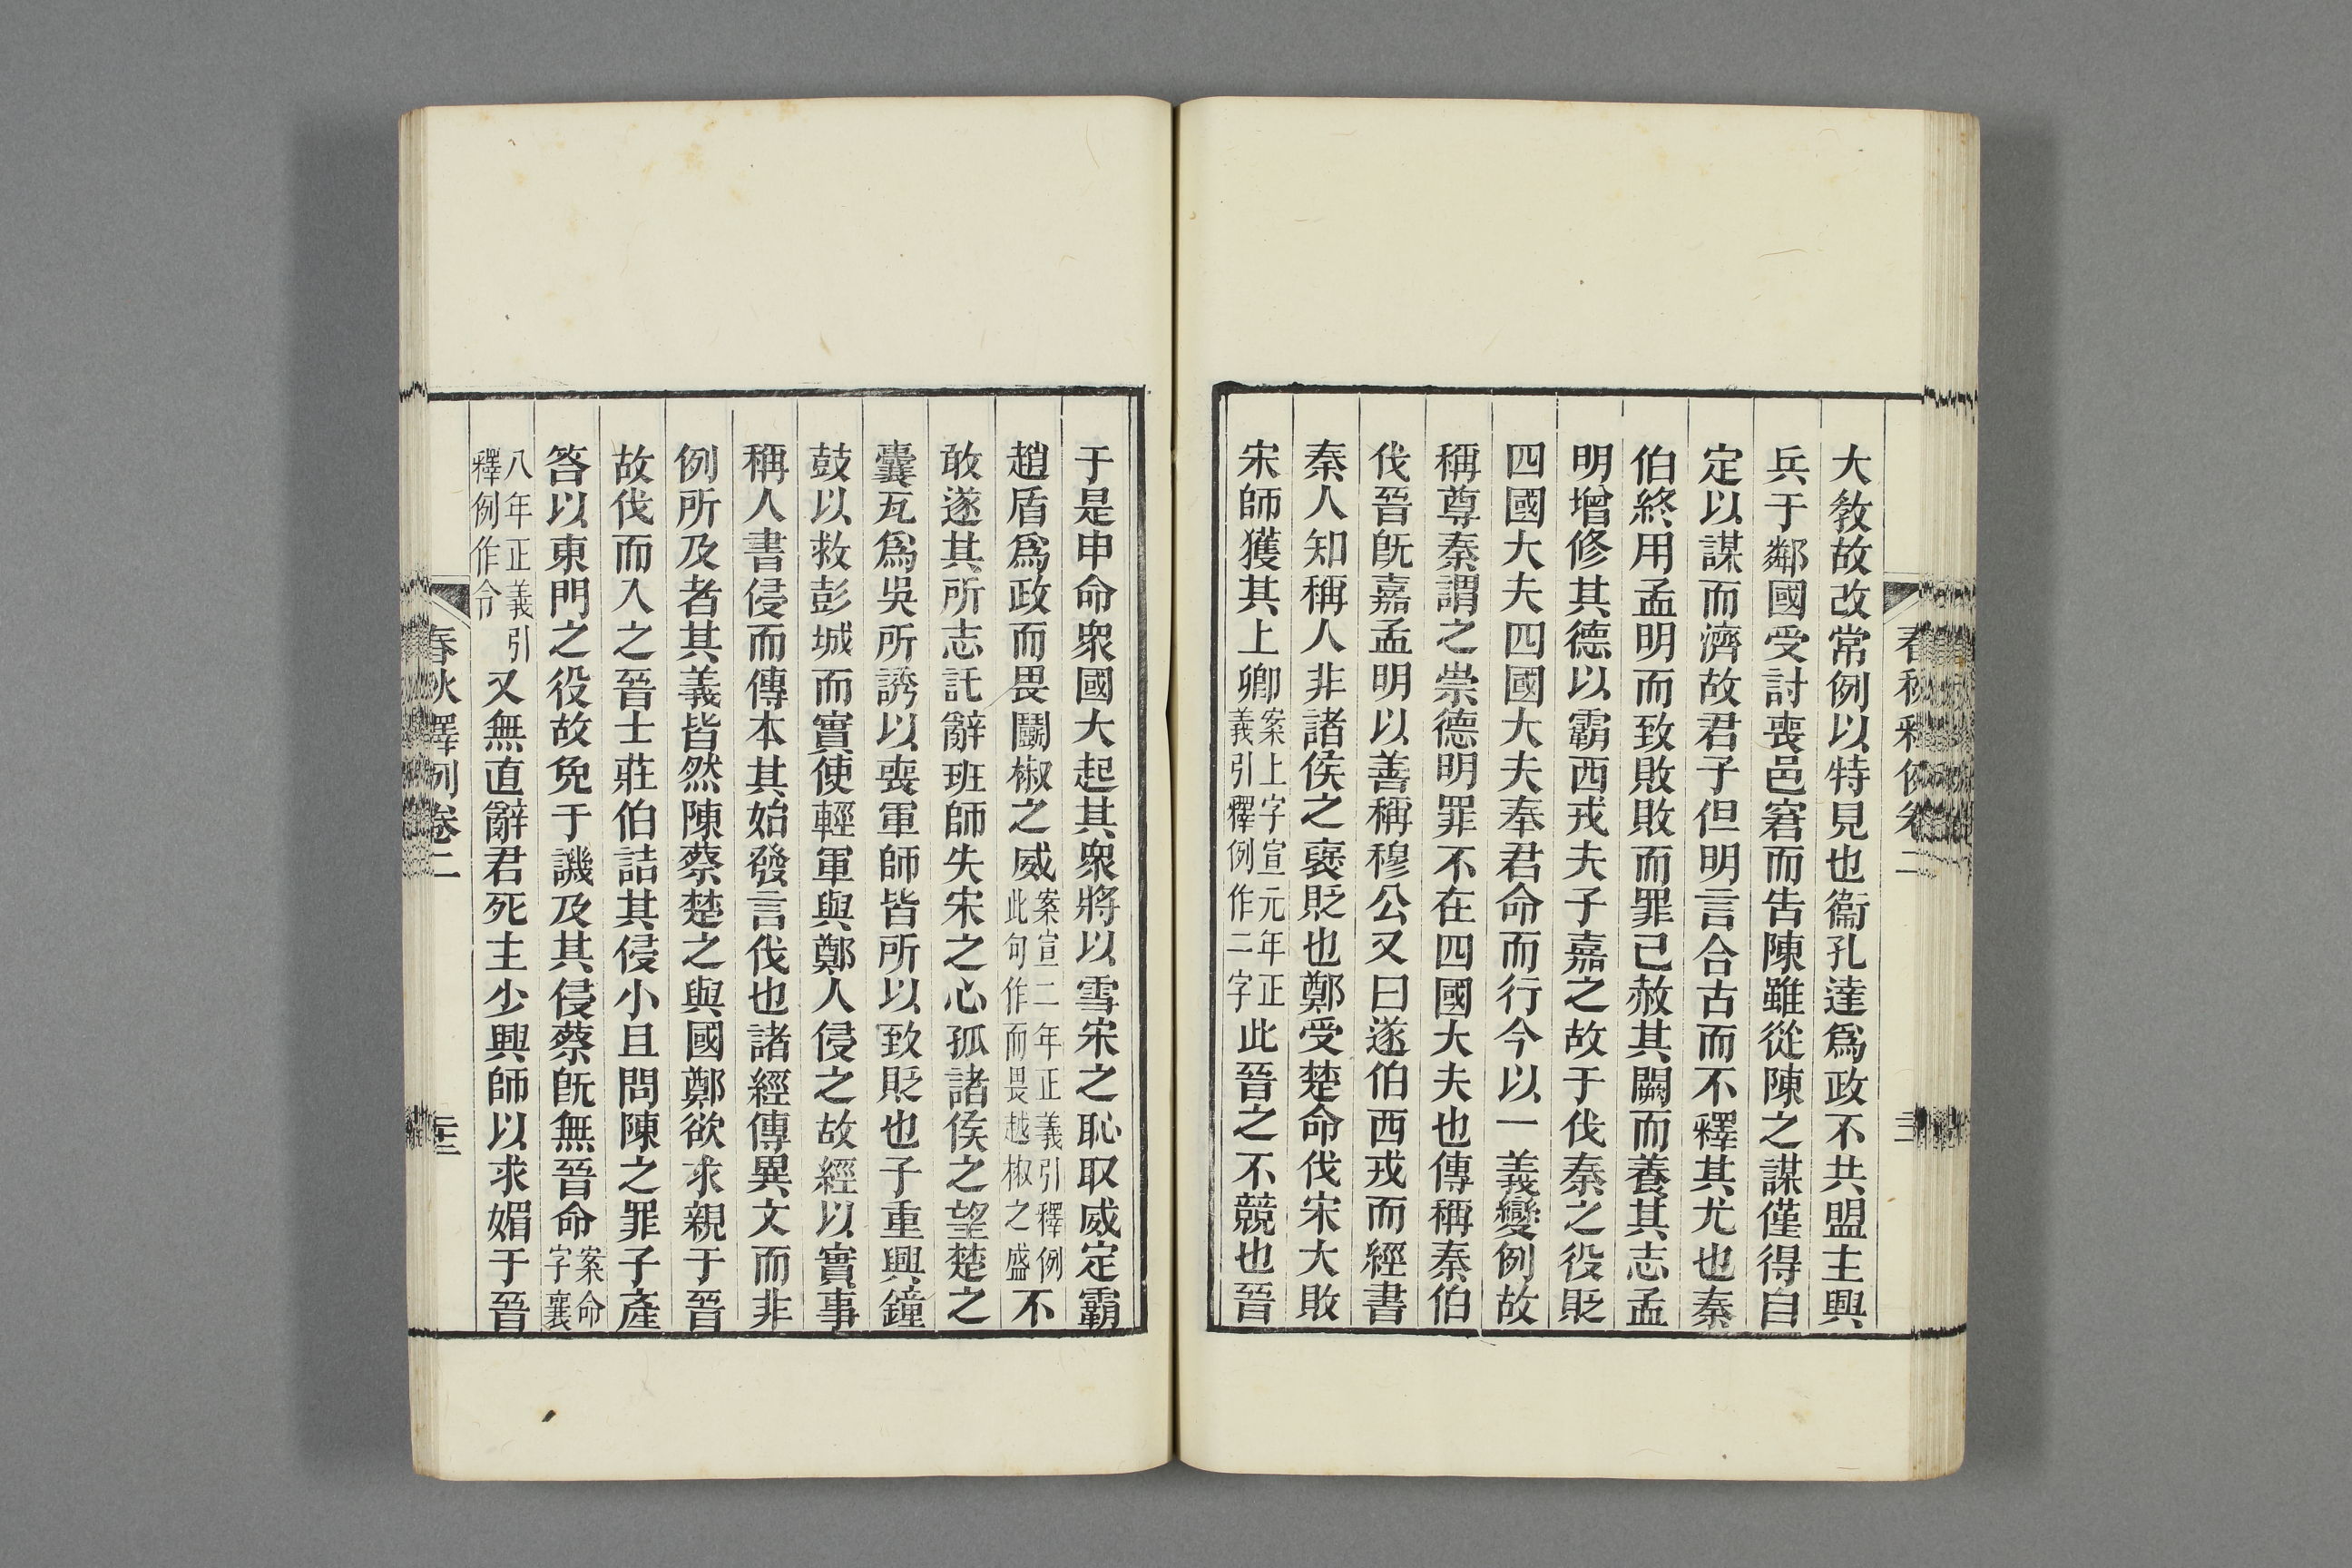 大敎故改常例以特見也衞孔達爲政不共盟主興
兵于鄰國受討喪邑窘而告陳雖從陳之謀僅得自
定以謀而濟故君子但明言合古而不釋其尤也秦
伯終用孟明而致敗敗而罪己赦其闕而養其志孟
明增修其德以霸西戎夫子嘉之故于伐秦之役貶
四國大夫四國大夫奉君命而行今以一義變例故
稱尊秦謂之崇德明罪不在四國大夫也傳稱秦伯
伐晉旣嘉孟明以善稱穆公又曰遂伯西戎而經書
秦人知稱人非諸侯之襃貶也鄭受楚命伐宋大敗
宋師獲其上卿案上字宣元年正義引釋例作二字此晉之不競也晉
于是申命衆國大起其衆將以雪宋之恥取威定霸
趙盾爲政而畏鬭椒之威案宣二年正義引釋例此句作而畏越椒之盛不
敢遂其所志託辭班師失宋之心孤諸侯之望楚之
囊瓦爲吳所誘以喪軍師皆所以致貶也子重興鐘
鼓以救彭城而實使輕軍與鄭人侵之故經以實事
稱人書侵而傳本其始發言伐也諸經傳異文而非
例所及者其義皆然陳蔡楚之與國鄭欲求親于晉
故伐而入之晉士莊伯詰其侵小且問陳之罪子產
答以東門之役故免于譏及其侵蔡旣無晉命案命字襄
八年正義引釋例作令又無直辭君死主少興師以求媚于晉
春秋釋例卷二